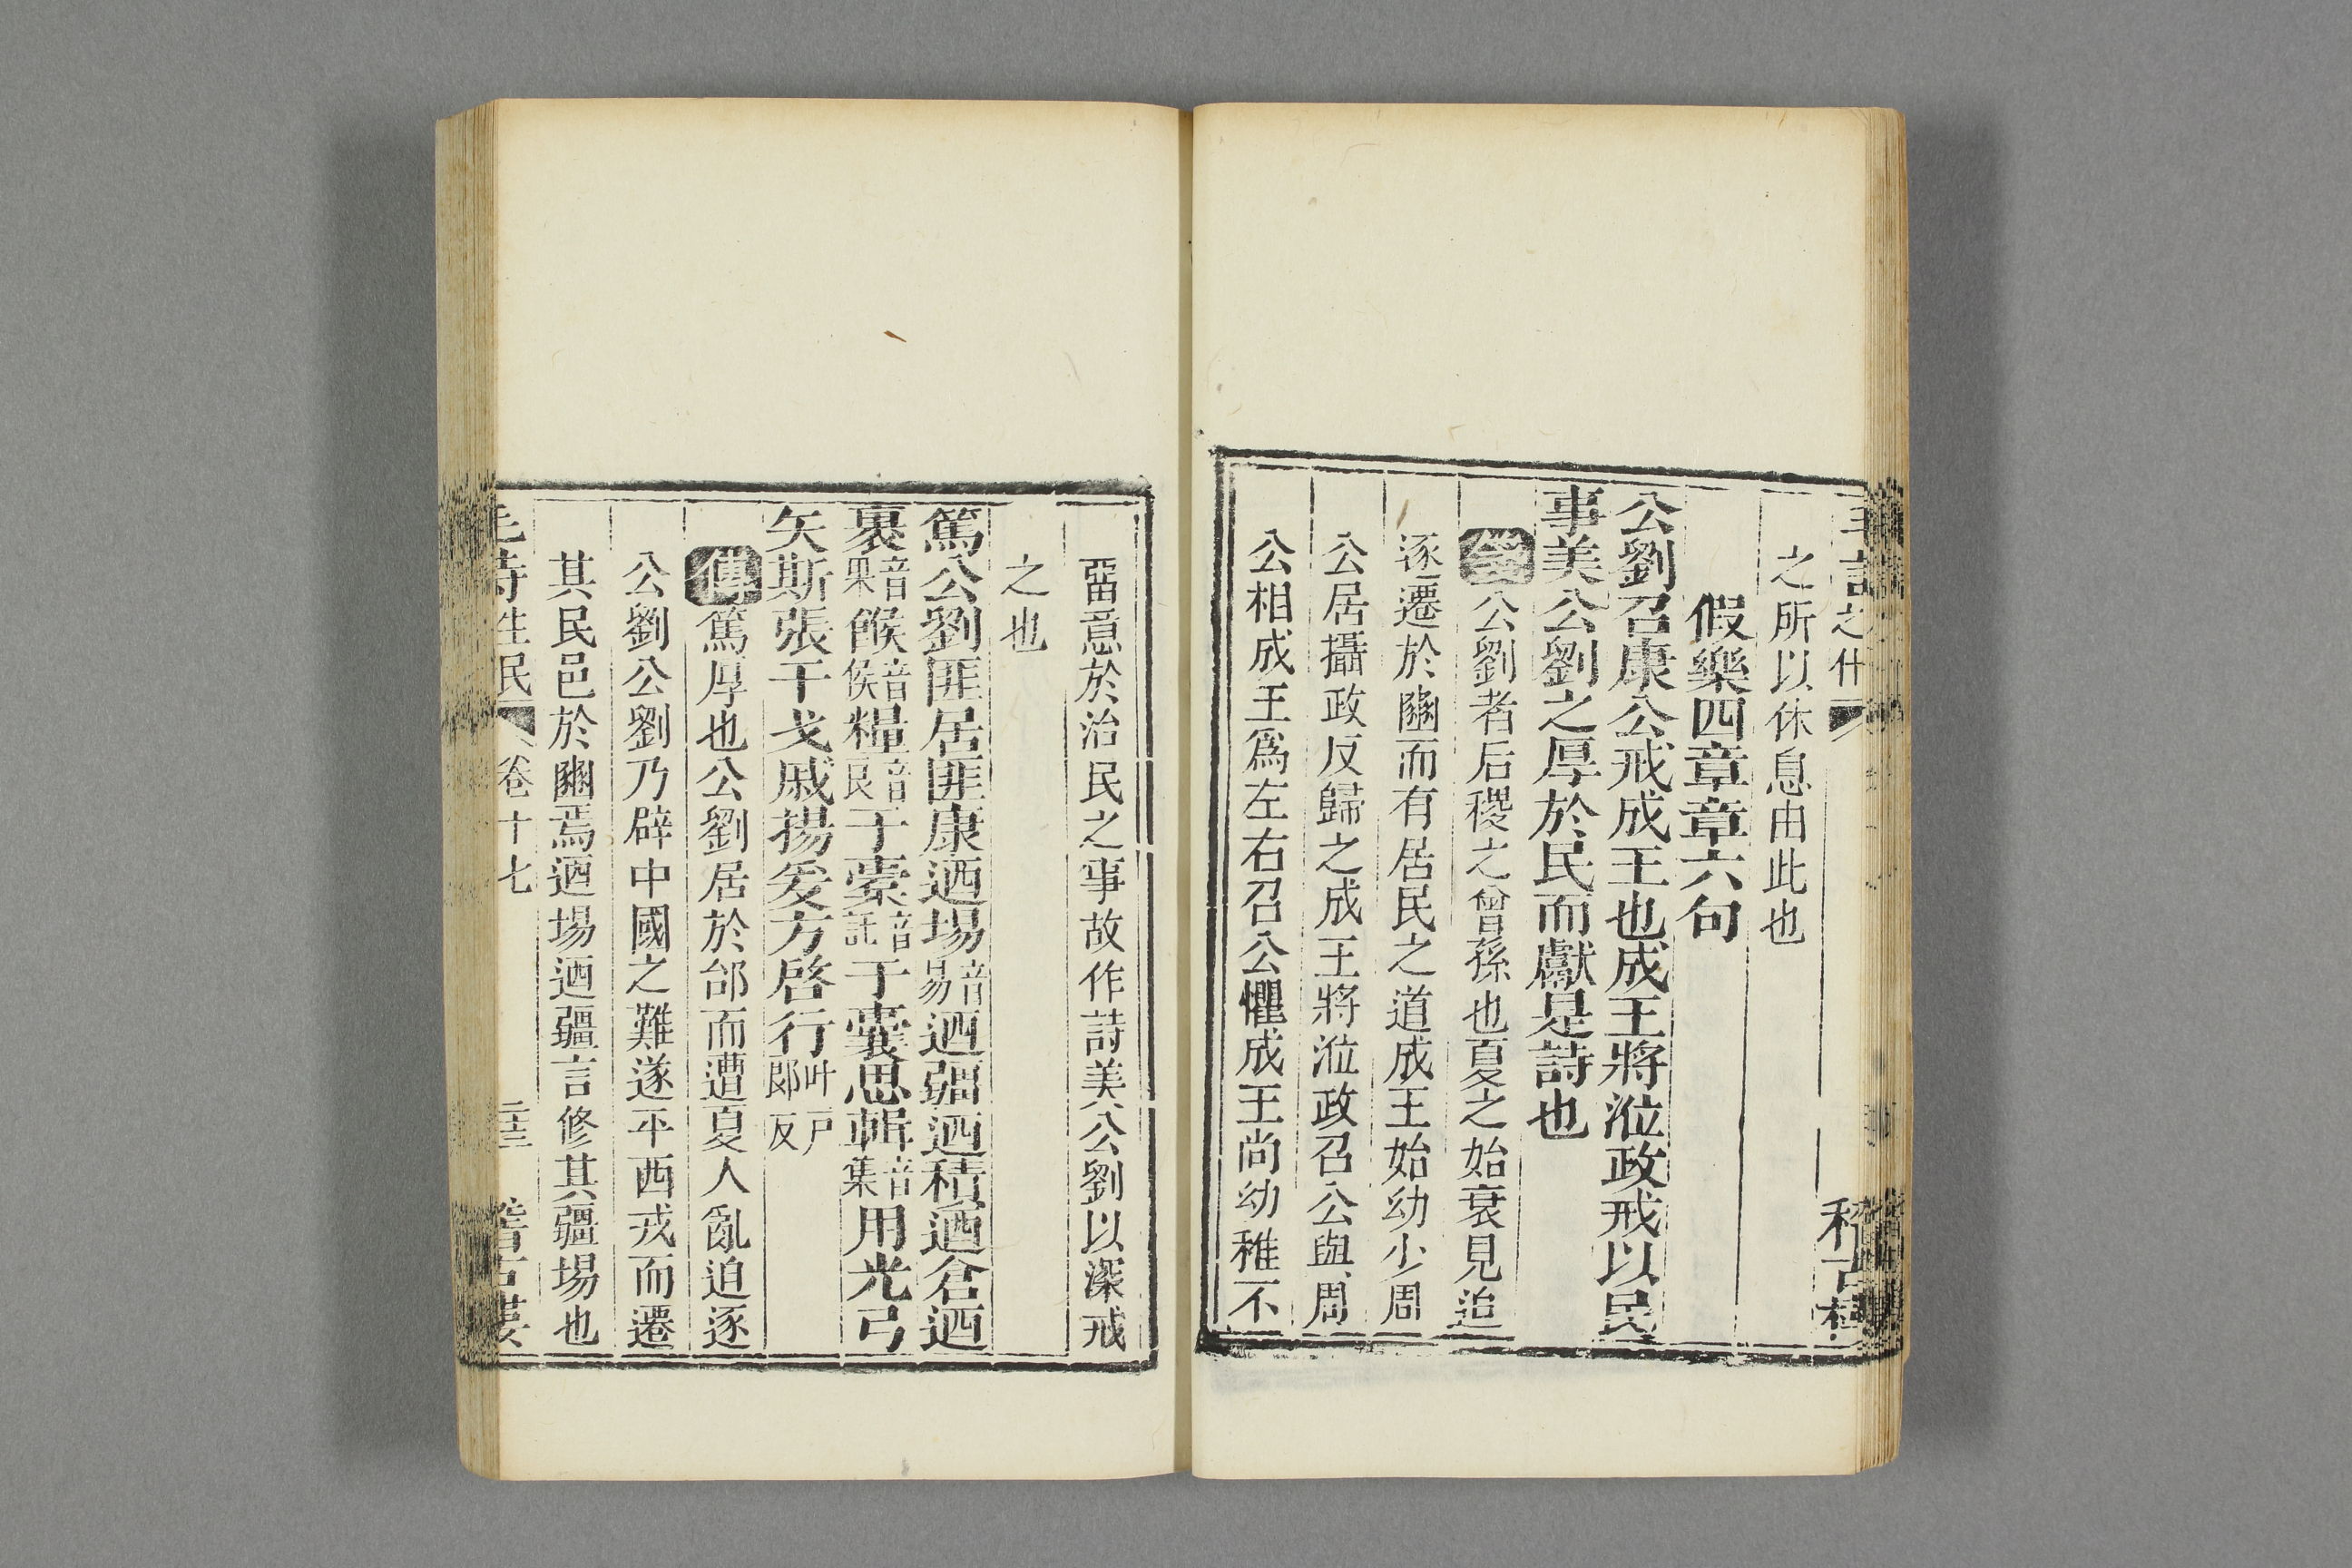 之所以休息由此也
假樂四章章六句
公劉召康公戒成王也成王將涖政戒以民
事美公劉之厚於民而獻是詩也
箋公劉者后稷之曾孫也夏之始衰見迫
逐遷於豳而有居民之道成王始幼少周
公居攝政反歸之成王將涖政召公與周
公相成王爲左右召公懼成王尚幼稚不
畱意於治民之事故作詩美公劉以深戒
之也
篤公劉匪居匪康迺埸音易迺疆迺積迺倉迺
裹音果餱音侯糧音良于橐音託于囊思輯音集用光弓
矢斯張干戈戚揚爰方啓行叶戸郞反
傳篤厚也公劉居於邰而遭夏人亂迫逐
公劉公劉乃辟中國之難遂平西戎而遷
其民邑於豳焉迺埸迺疆言修其疆埸也
毛詩生民 卷十七 二十三 稽古樓